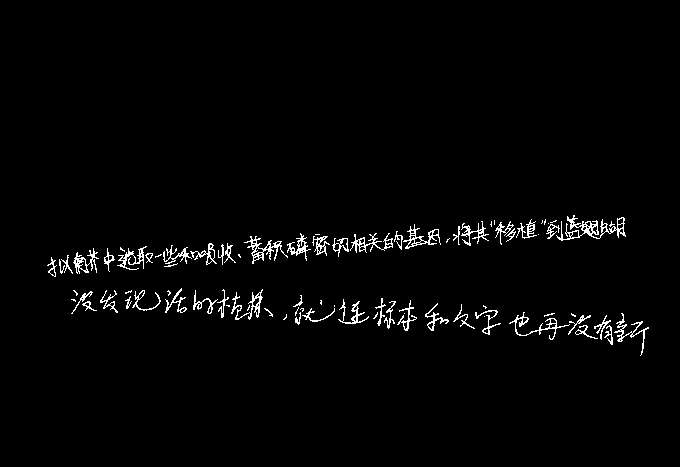 拟南芥中选取一些和吸收、蓄积磷密切相关的基因，将其“移植”到蓝蝴蝴
没发现活的植株，就连标本和文字也再没有新